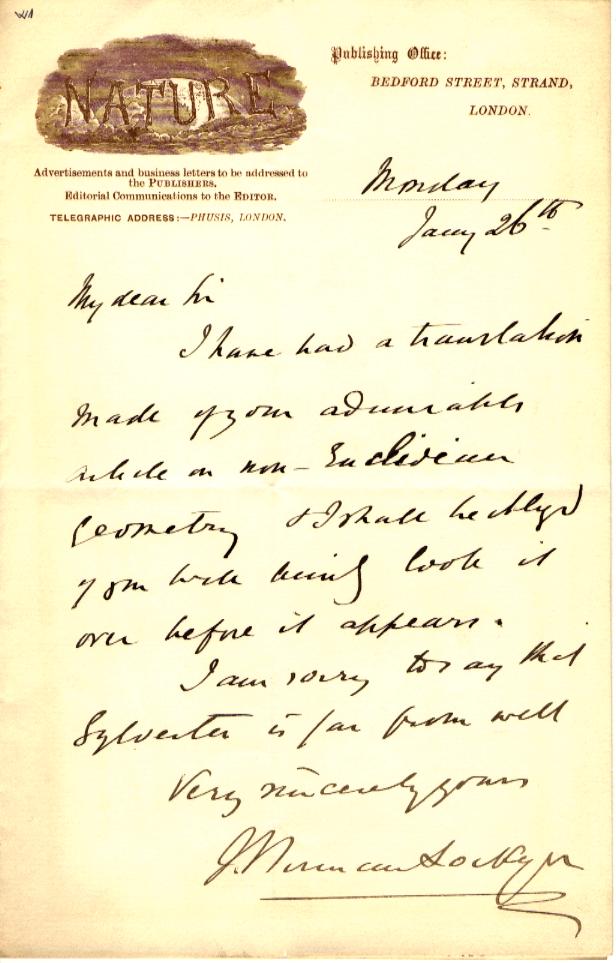 NATURE
Publishing Office:
BEDFORD STREET, STRAND,
LONDON.
Advertisements and business letters to be addressed to
the PUBLISHERS.
Editorial Communications to the EDITOR.
TELEGRAPHIC ADDRESS:—PHUSIS, LONDON.
Monday
Jany 26th
My dear Sir
I have had a translation
made of your admirable
article on non-Euclidian
geometry & I shall be oblyd
if you will kindly look it
over before it appears.
I am sorry to say that
Sylvester is far from well
Very sincerely yours
J. Norman Lockyer